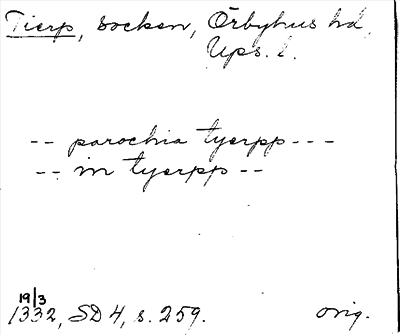 Tierp, socken, Örbyhus hd,
Ups. l.
-- parochia tyerpp ---
-- in tyerpp --
19/3
1332, SD 4, s. 259. orig.